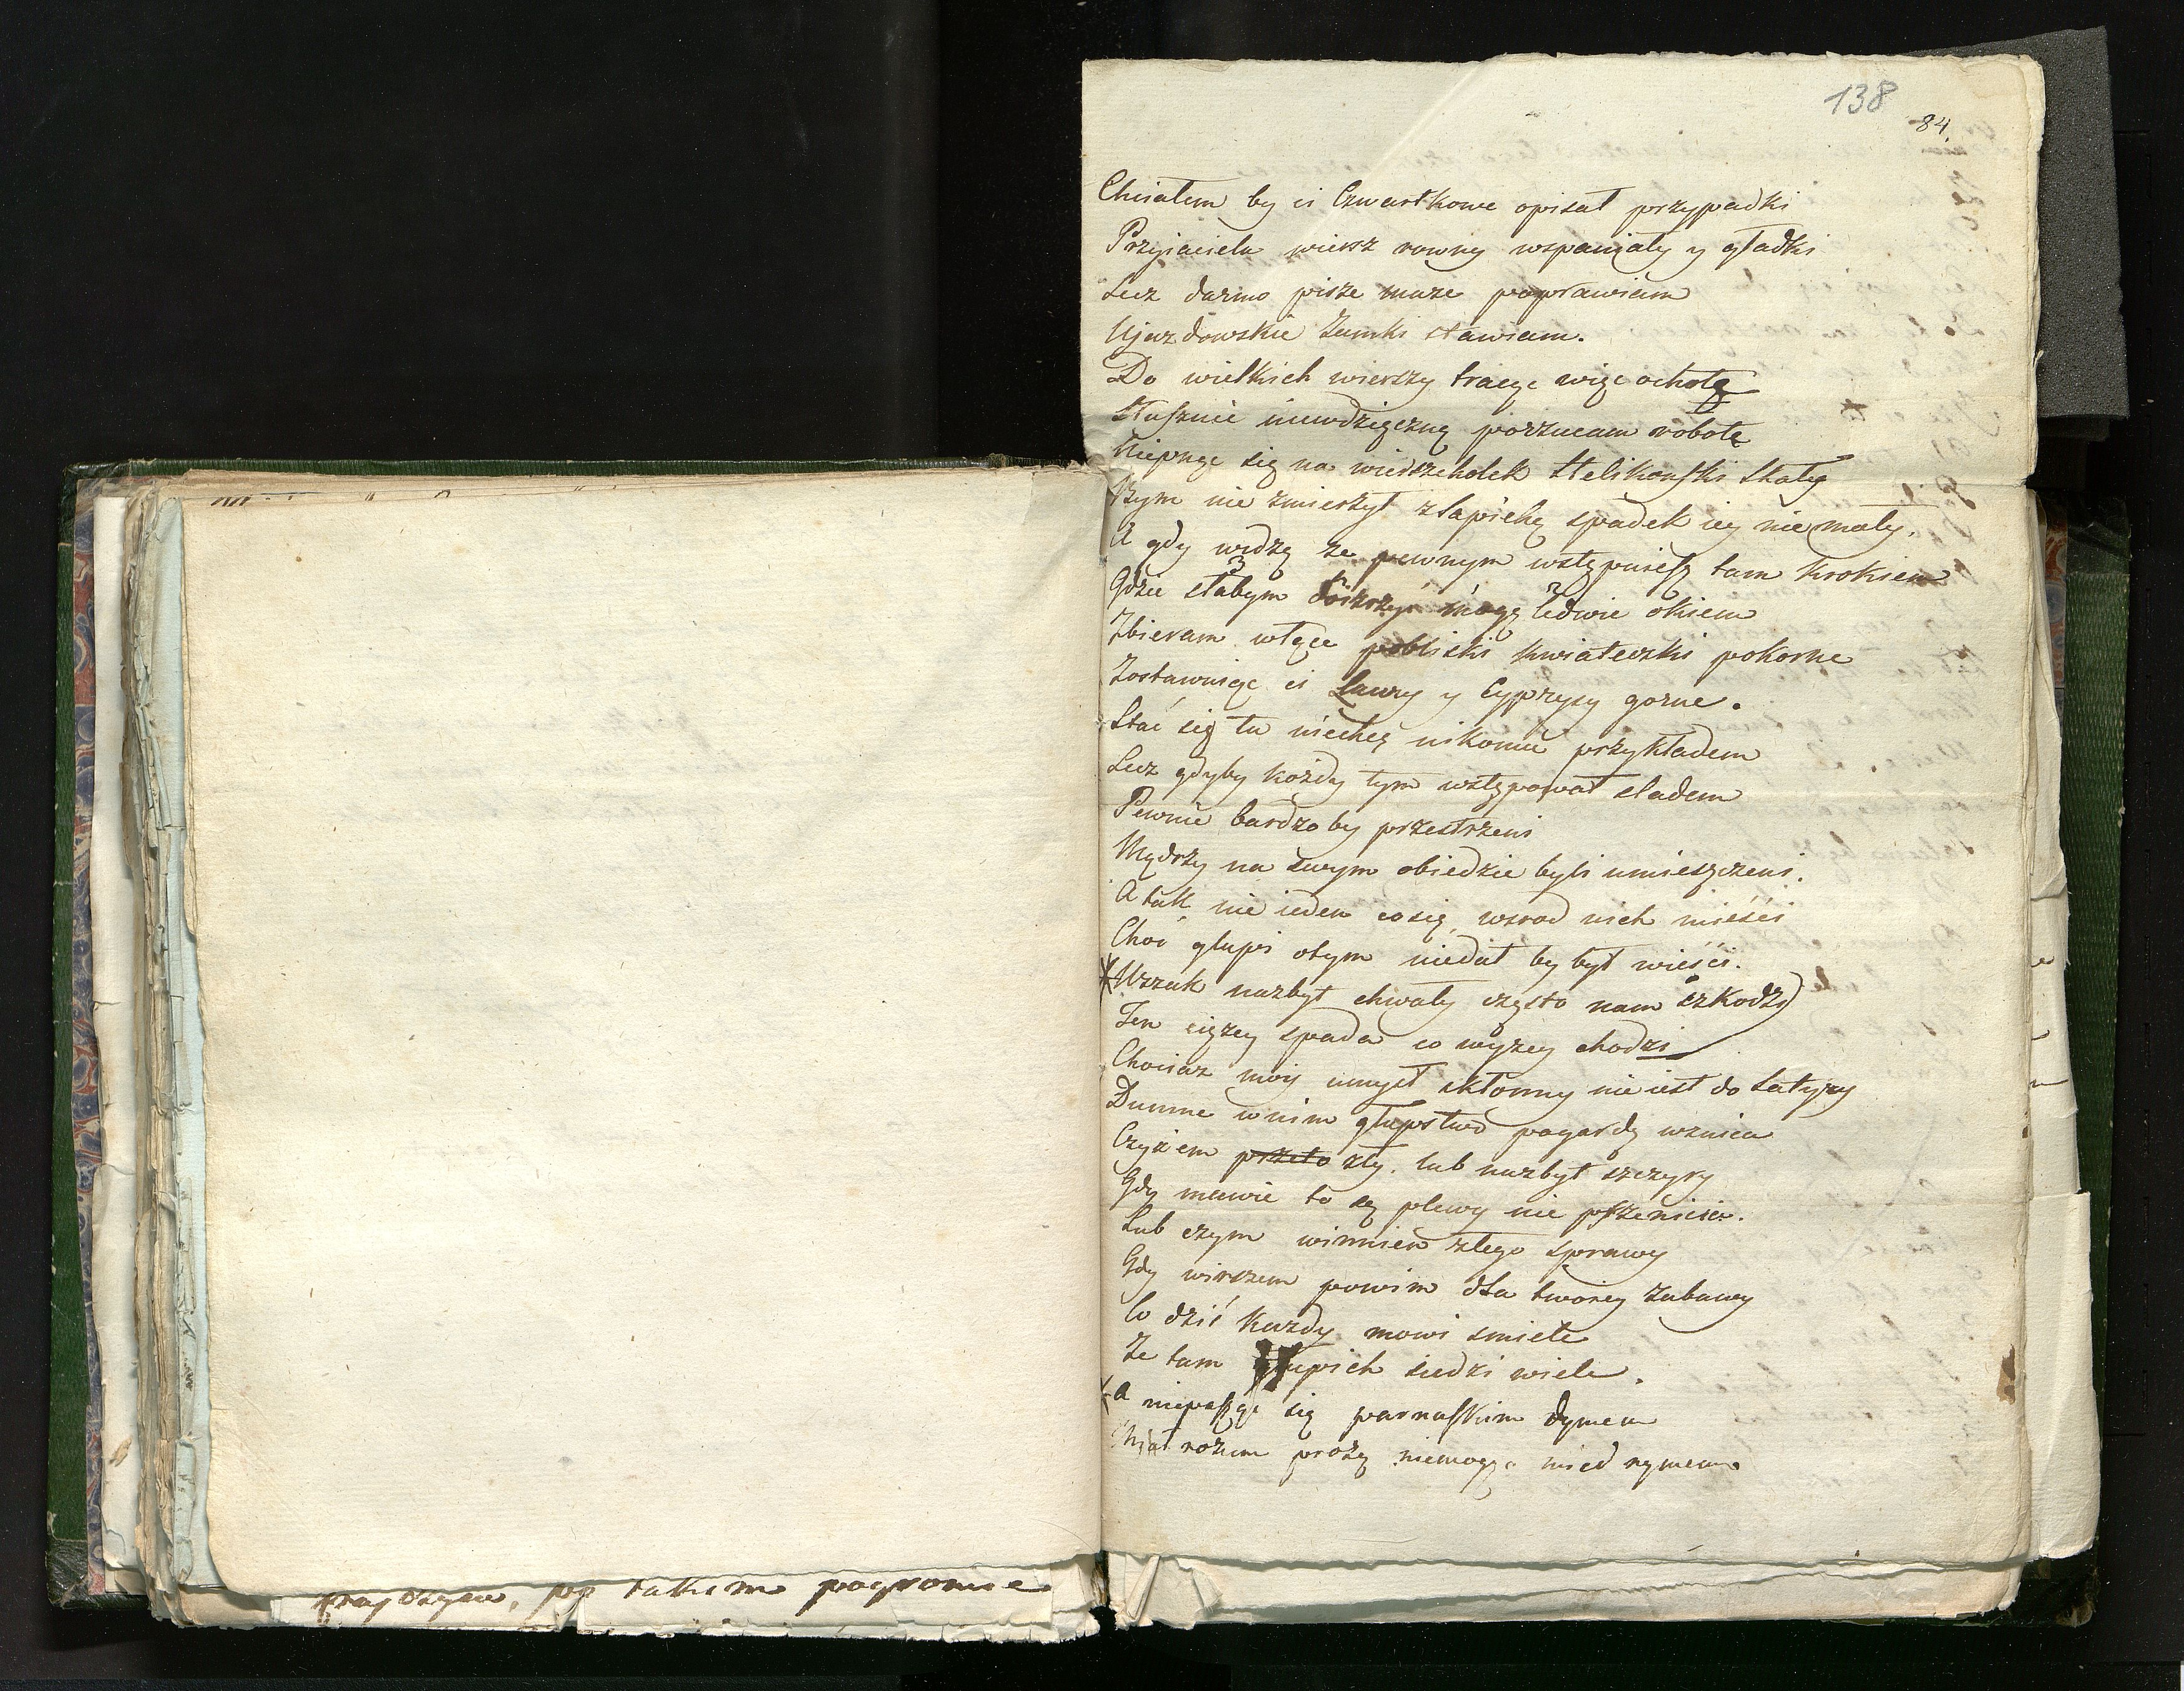 138
84.
Chciałem by ci Czwartkowe opisał przypadki
Przyiaciela wiersz rowny wspaniały y gładki
Lecz darmo pisze maze poprawiam
Ujazdowskie Zamki stawiam.
Do wielkich wierszy tracąc więc ochotę
Słusznie niewdzięczną porzucam robotę
Niepnąc się na wierszchołek Helikoński Skały
Bym nie zmierzył z łapichę spadek iey nie mały.
A gdy widzę że pewnym wstępuiesz tam krokiem
Gdzie słabym doirzyć mogę ledwie okiem
3 2
Zbieram w łące pobliski kwiateczki pokorne
Zostawuiąc ci Laury y Cyprysy gorne.
Stać się tu niechcę nikomu przykładem
Lecz gdyby każdy tym wstępował sladem
Pewnie bardzo by przestrzeni
Mądrzy na swym obiedzie byli umieszczeni.
A tak nie ieden co się wsrod nich mieści
Choć głupi o tym niedał by był wieści.
Wszak nazbyt chwały często nam szkodzi
Ten ciężey spada co wyzey chodzi
Chociaz moy umysł skłonny nie iest do Satyry
Dumne w nim głupstwo pogardę wznieca
Czyżem przeto zły. lub nazbyt szczyry
Gdy mawie to są plewy nie pszenica.
Lub czym winnien złego sprawy
Gdy wirszem powim dla twoiey zabawy
Co dziś każdy mowi smiele
Ze tam głupich siedzi wiele.
A niepasząc się parnaskim dymem
rozum prozą niemogąc mied rymem.
po takim pogromie